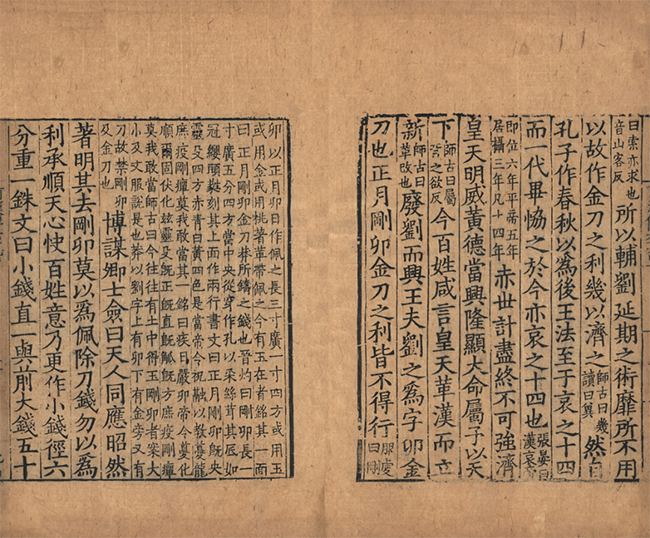 曰索亦求也音山客反所以輔劉延期之術靡所不用
以故作金刀之利幾以濟之師古曰幾讀曰冀然自
孔子作春秋以爲後王法至于哀之十四
而一代畢恊之於今亦哀之十四也張晏曰漢哀
即位六年平帝五年居攝三年凡十四年赤世計盡終不可強濟
皇天明威黃德當興隆顯大命屬予以天
下師古曰屬音之欲反今百姓咸言皇天革漢而立
新師古曰革改也廢劉而興王夫劉之爲字卯金
刀也正月剛卯金刀之利皆不得行服虔曰剛
卯以正月卯日作佩之長三寸廣一寸四方或用玉
或用金或用桃著革帶佩之今有玉在者銘其一面
曰正月剛卯金刀莽所鑄之錢也晉灼曰剛卯長一
寸廣五分四方當中央從穿作孔以采絲葺其底如
冠纓頭蕤刻其上面作兩行書文曰正月剛卯旣央
靈殳四方赤青白黃四色是當帝令祝融以敎夔龍
庶疫剛癉莫我敢當其一銘曰疾日嚴卯帝令夔化
順爾固伏化茲靈殳旣正旣直旣觚旣方庶疫剛癉
莫我敢當師古曰今往往有土中得玉剛卯者案大
小及文服說是也莽以劉字上有卯下有金旁又有
刀故禁剛卯及金刀也博謀卿士僉曰天人同應昭然
著明其去剛卯莫以爲佩除刀錢勿以爲
利承順天心快百姓意乃更作小錢徑六
分重一銖文曰小錢直一與前大錢五十